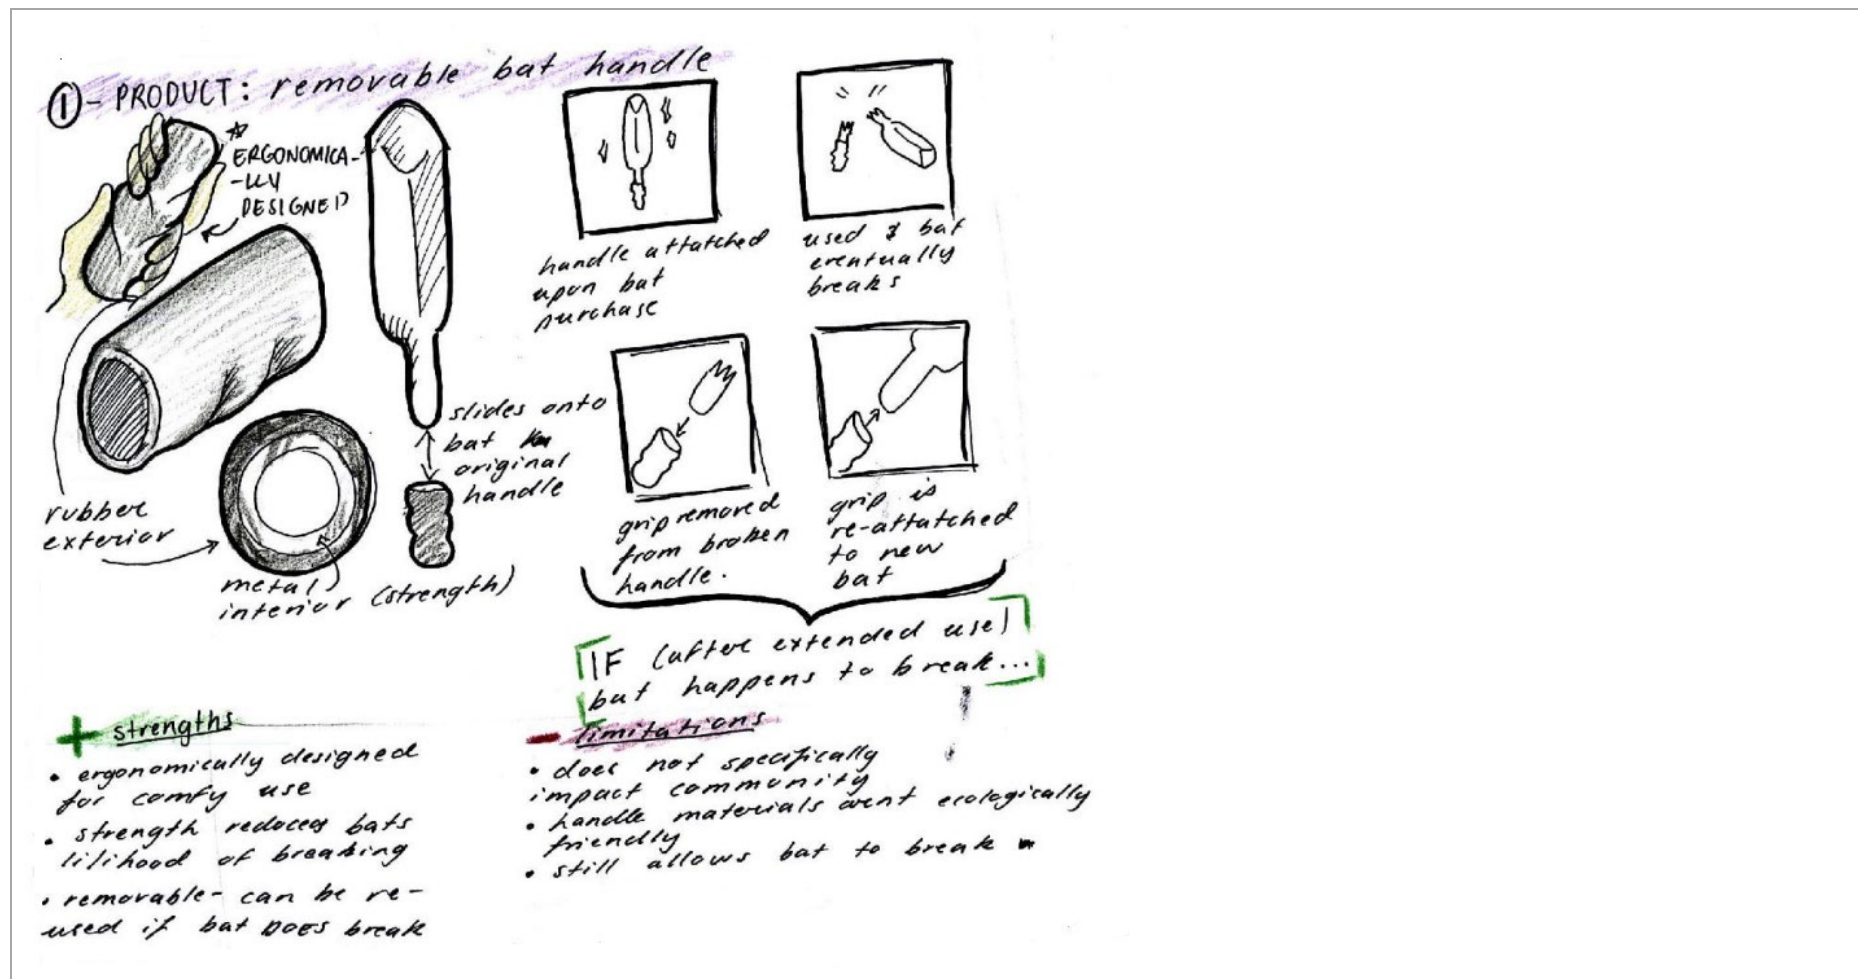 ① - PRODUCT: removable bat handle
* ERGONOMICA-
-LLY
DESIGNED
slides onto
bat
original
handle
rubber
exterior
metal
interior (strength)
handle attatched
upon bat
purchase
used & bat
eventually
breaks
grip removed
from broken
handle.
grip is
re-attatched
to new
bat
IF (after extended use)
bat happens to break...
+ strengths
• ergonomically designed
for comfy use
• strength reduces bats
lilihood of breaking
• removable- can be re-
used if bat DOES break
- limitations
• does not specifically
impact community
• handle materials arent ecologically
friendly
• still allows bat to break